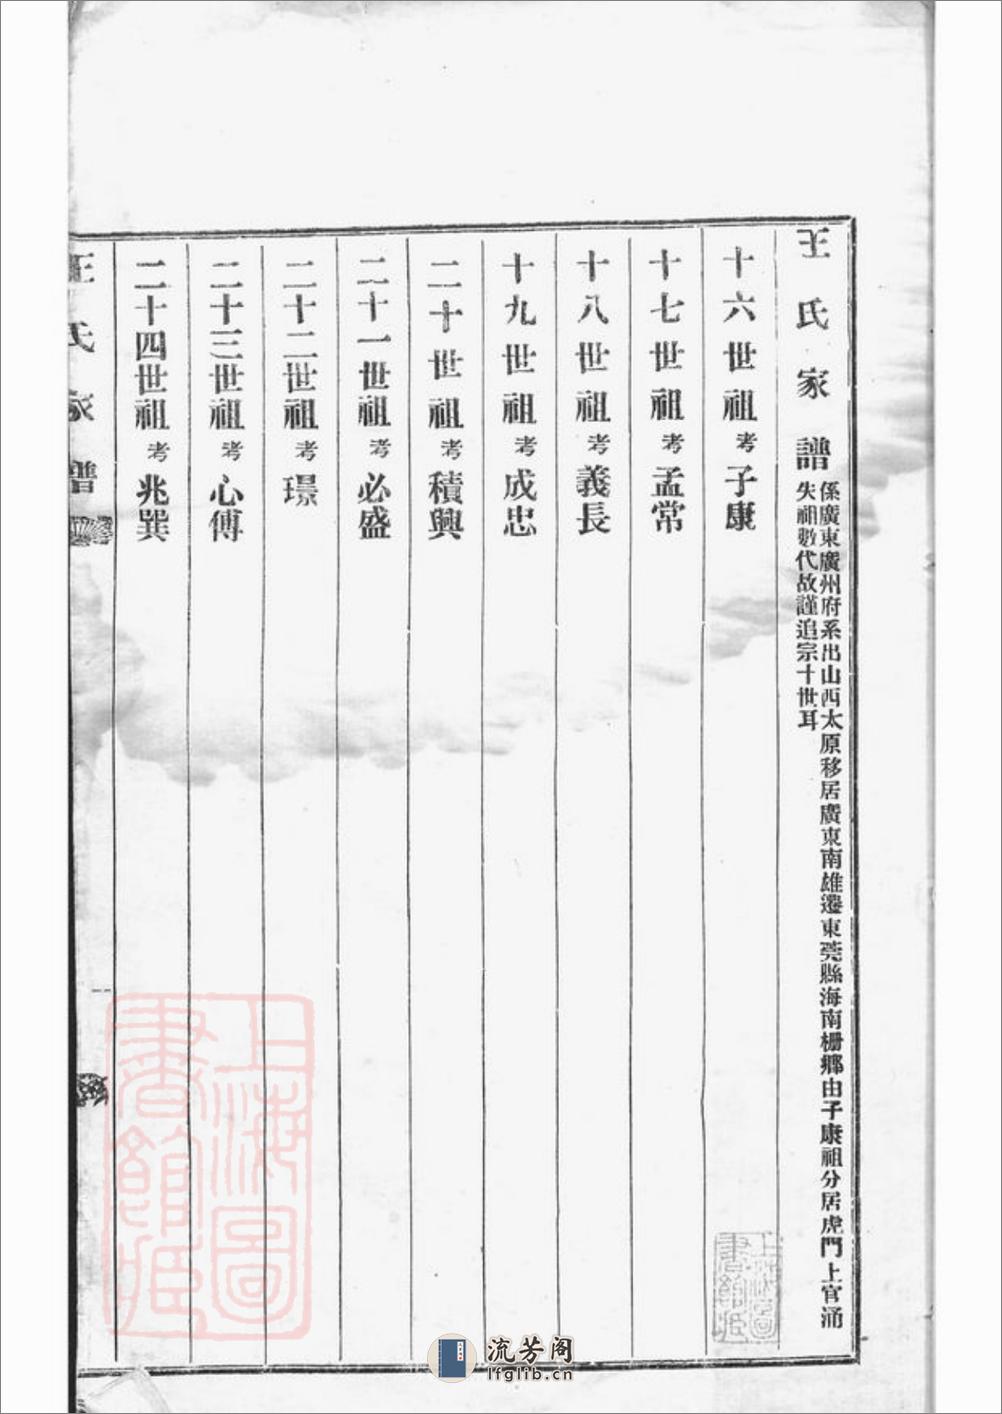 王氏家譜
係廣東廣州府系出山西太原移居廣東南雄遷東莞縣海南柵鄉由子康祖分居虎門上官涌
失祖數代故謹追宗十世耳
十六世祖考子康
十七世祖考孟常
十八世祖考義長
十九世祖考成忠
二十世祖考積興
二十一世祖考必盛
二十二世祖考璟
二十三世祖考心傅
二十四世祖考兆巽
王氏家譜
上海圖書館藏
上海圖書館藏
流芳阁
lfglib.cn